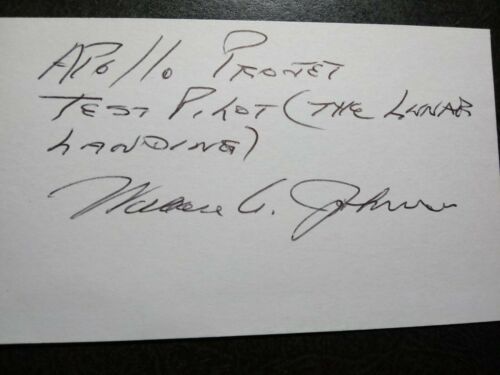 APOllO PROJET
TEST PILOT (THE LUNAR
LANDING)
Wallace A. Johnson